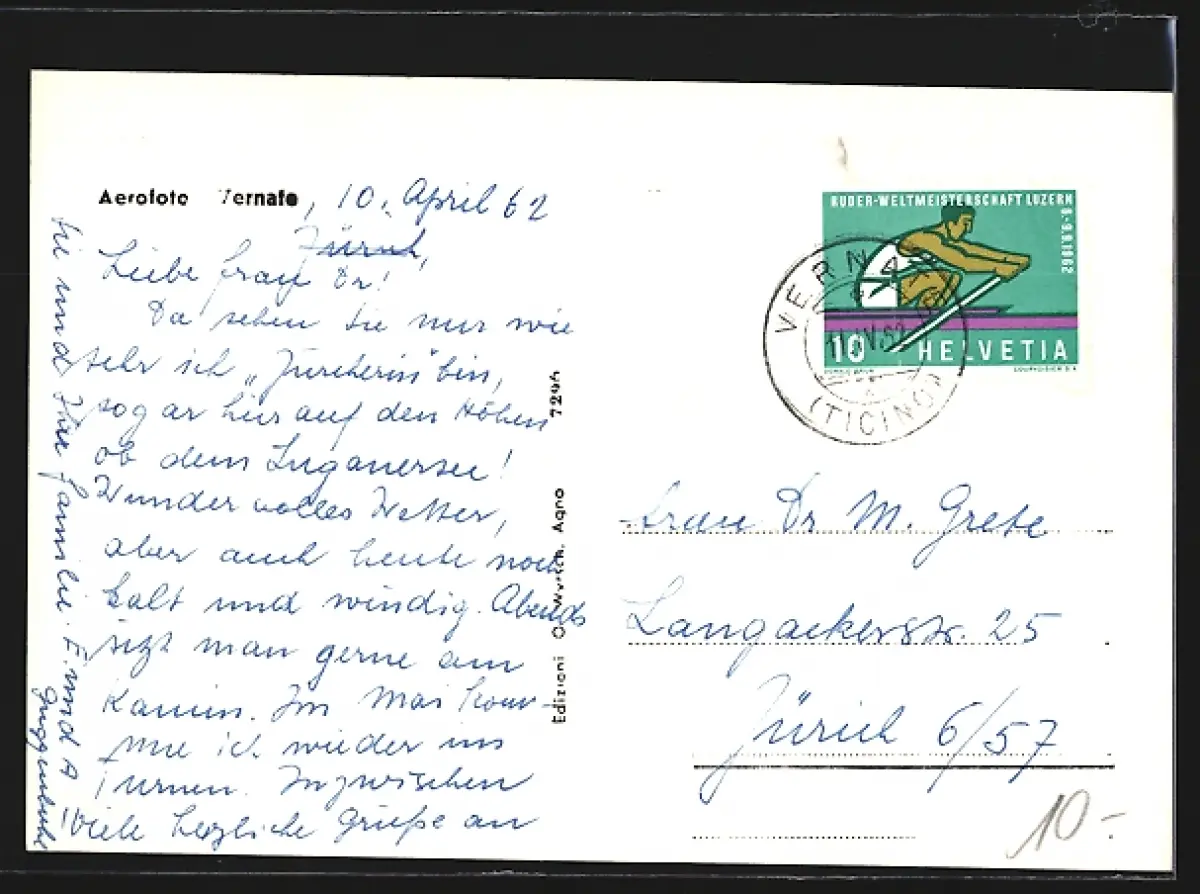 Aerofoto Vernate, 10. April 62
Zürich,
Liebe Frau Dr!
Da sehen Sie nur wie
sehr ich „Zürcherin" bin,
sogar hier auf den Höhen
ob dem Luganersee!
Wundervolles Wetter,
aber auch heute noch
kalt und windig. Abends
sitzt man gerne am
Kamin. Im Mai kom-
me ich wieder ins
Turnen. Inzwischen
viele herzliche Grüße an
Sie und Ihre Familie. E. und A
Guggenbühl
Edizioni Agno 7296
RUDER-WELTMEISTERSCHAFT LUZERN
6.-9.9.1962
10 HELVETIA
COURVOISIER S.A.
VERNATE
11.IV.62
(TICINO)
Frau Dr M. Grete
Langackerstr. 25
Zürich 6/57
10.-